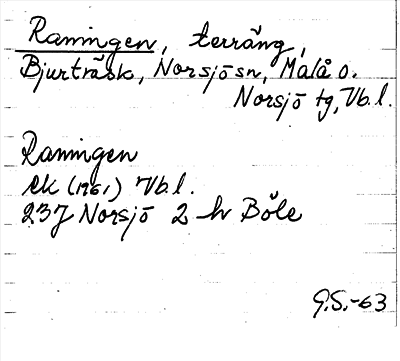 Ramingen, terräng,
Bjurträsk, Norsjö sn, Malå o.
Norsjö tg, Vb.l.
Ramingen
ek (1961) Vb.l.
237 Norsjö 2 h Böle
G.S.-63